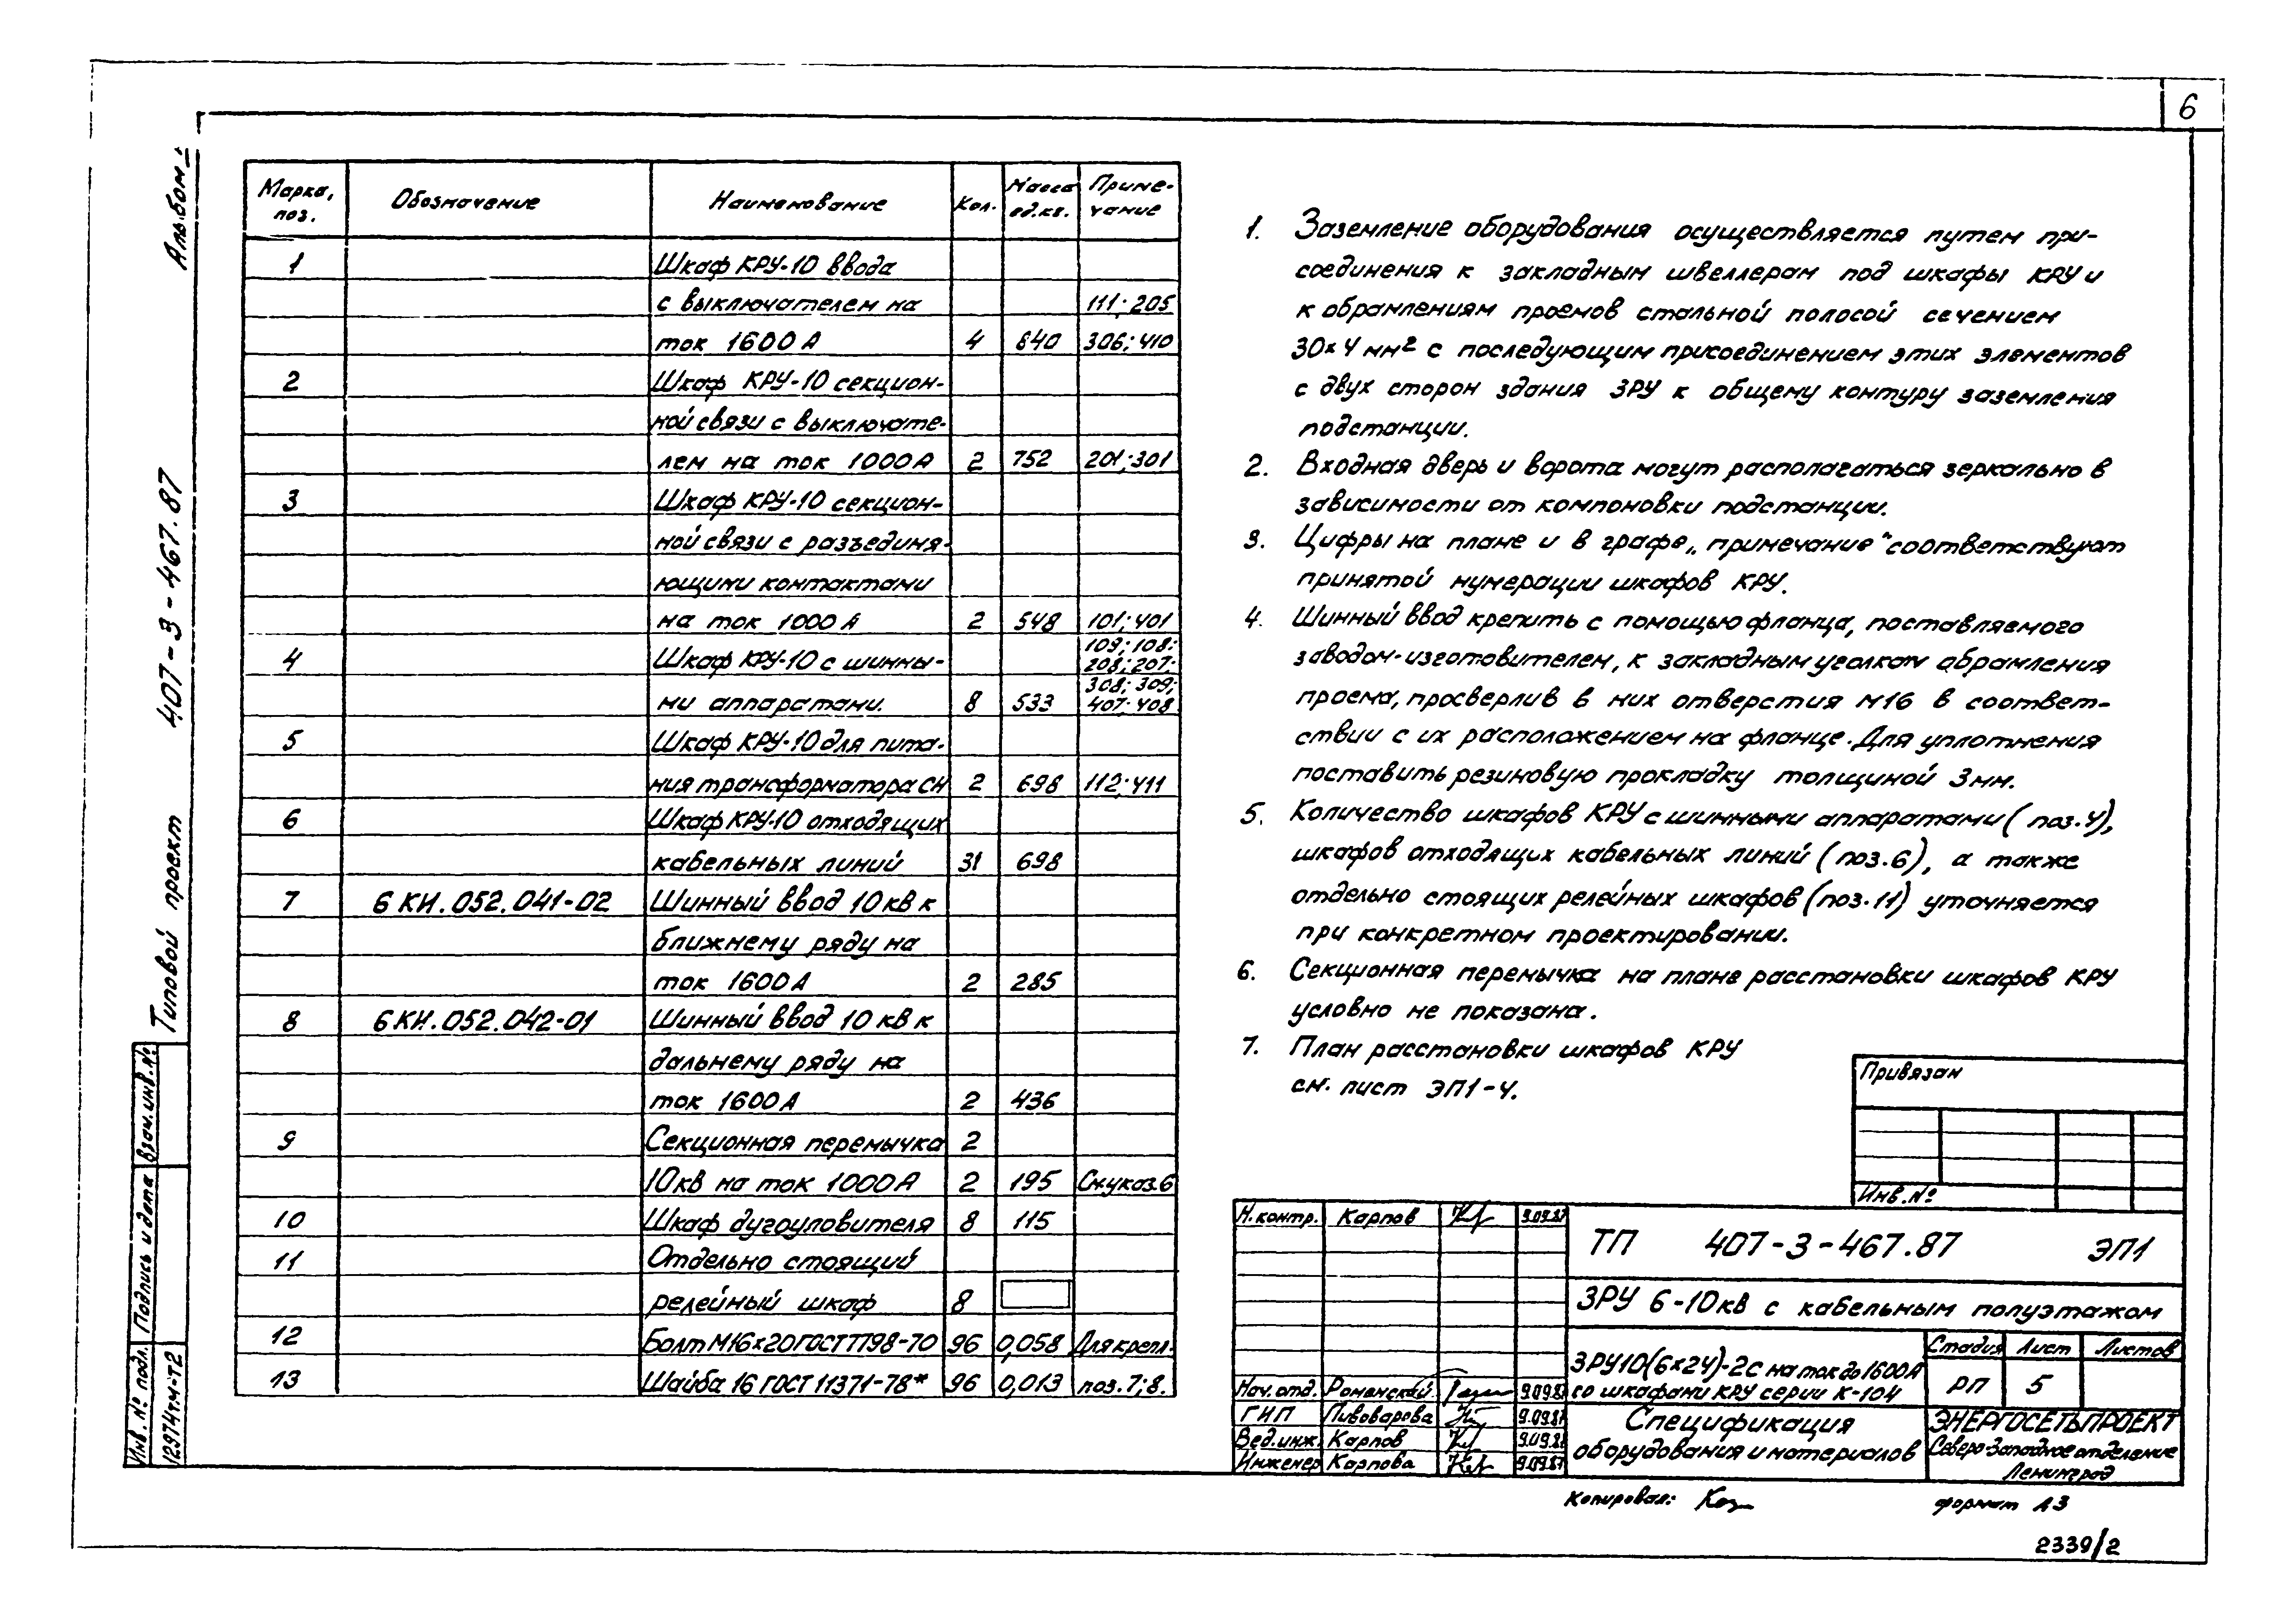 6
Альбом
Типовой проект 407-3-467.87
Взам. инв. №
Подпись и дата
Инв. № подл.
12974тм-т2
Марка, поз. Обозначение Наименование Кол. Масса ед.кг. Приме-чание
1 Шкаф КРУ-10 ввода
с выключателем на 111; 205
ток 1600 А 4 840 306; 410
2 Шкаф КРУ-10 секцион-
ной связи с выключате-
лем на ток 1000А 2 752 201; 301
3 Шкаф КРУ-10 секцион-
ной связи с разъединя-
ющими контактами
на ток 1000 А 2 548 101; 401
4 Шкаф КРУ-10 с шинны- 109; 108; 208; 207;
ми аппаратами. 8 533 308; 309; 407; 408
5 Шкаф КРУ-10 для пита-
ния трансформатора СН 2 698 112; 411
6 Шкаф КРУ-10 отходящих
кабельных линий 31 698
7 6КИ.052.041-02 Шинный ввод 10 кВ к
ближнему ряду на
ток 1600 А 2 285
8 6КИ.052.042-01 Шинный ввод 10 кВ к
дальнему ряду на
ток 1600 А 2 436
9 Секционная перемычка 2
10кВ на ток 1000А 2 195 См.указ.6
10 Шкаф дугоуловителя 8 115
11 Отдельно стоящий
релейный шкаф 8
12 Болт М16×20 ГОСТ 7798-70 96 0,058 Для крепл.
13 Шайба 16 ГОСТ 11371-78* 96 0,013 поз. 7; 8.
1. Заземление оборудования осуществляется путем при-
соединения к закладным швеллерам под шкафы КРУ и
к обрамлениям проемов стальной полосой сечением
30×4 мм² с последующим присоединением этих элементов
с двух сторон здания ЗРУ к общему контуру заземления
подстанции.
2. Входная дверь и ворота могут располагаться зеркально в
зависимости от компоновки подстанции.
3. Цифры на плане и в графе „примечание" соответствуют
принятой нумерации шкафов КРУ.
4. Шинный ввод крепить с помощью фланца, поставляемого
заводом-изготовителем, к закладным уголкам обрамления
проема, просверлив в них отверстия М16 в соответ-
ствии с их расположением на фланце. Для уплотнения
поставить резиновую прокладку толщиной 3мм.
5. Количество шкафов КРУ с шинными аппаратами (поз. 4),
шкафов отходящих кабельных линий (поз. 6), а также
отдельно стоящих релейных шкафов (поз. 11) уточняется
при конкретном проектировании.
6. Секционная перемычка на плане расстановки шкафов КРУ
условно не показана.
7. План расстановки шкафов КРУ
см. лист ЭП1-4.
Привязан
Инв. №
Н. контр. Карпов 9.09.87
ТП 407-3-467.87 ЭП1
ЗРУ 6-10кВ с кабельным полуэтажом
ЗРУ10(6×24)-2с на ток до 1600А
со шкафами КРУ серии К-104
Стадия Лист Листов
РП 5
Нач. отд. Романский 9.09.87
ГИП Пивоварова 9.09.87
Вед. инж. Карпов 9.09.87
Инженер Карпова 9.09.87
Спецификация
оборудования и материалов
ЭНЕРГОСЕТЬПРОЕКТ
Северо-Западное отделение
Ленинград
Копировал:
формат А3
2339/2